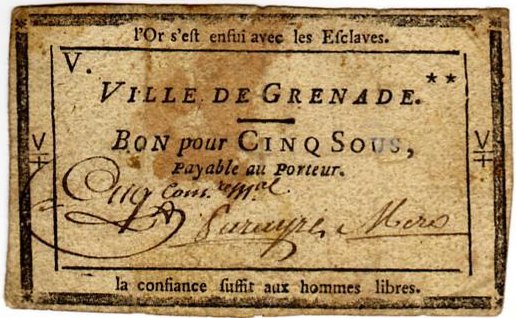 l'Or s'eſt enfui avec les Eſclaves.
V.
**
VILLE DE GRENADE.
BON pour CINQ SOUS,
Payable au Porteur.
V
V
la confiance ſuffit aux hommes libres.